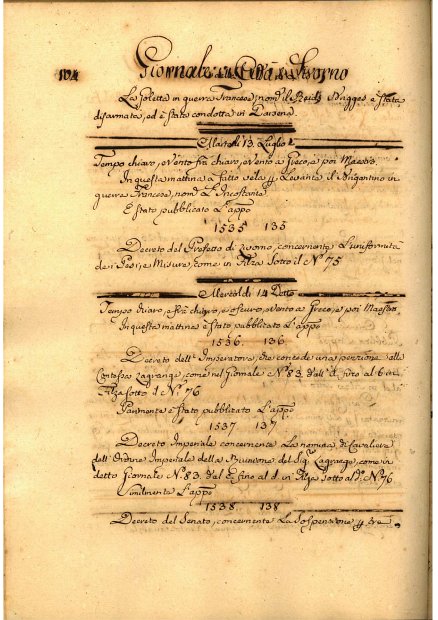 104 Giornale di Città di Livorno
La Goletta in guerra Francese, nom. il è stata
disarmata, ed è stata condotta in Darsena.
Martedì 13. Luglio
Tempo chiaro, e Vento frà chiaro, e Vento a Greco, e poi Maestro
In questa mattina a fatto vela p. Levante il Brigantino in
guerra Francese, nom. L'Incostante
E Stato pubblicato L'appo
1535 135
Decreto del Prefetto di Livorno, concernente L'uniformità
de i Pesi, e Misure, come in Filza Sotto il N.º 75
Mercoldì 14 Detto
Tempo chiaro, e frà chiaro, e oscuro, e Vento a Greco, e poi Maestro
In questa mattina è stato pubblicato L'appo
1536. 136
Decreto dell'Imperatore, che concede una penzione alla
Contessa Lagrange, come nel Giornale N.º 83. dall' al 6 in
Filza sotto il N.º 76
Parimente è stato pubblicato L'appo
1537 137
Decreto Imperiale concernente La nomina di Cavaliere
dell'Ordine Imperiale della Riunione del Sig.
detto Giornale N.º 83. dal E fino al d. in Filza sotto al d.º N.º 76
Similmente L'appo
1538 138
Decreto del Senato, concernente La Sospenzione p. tre